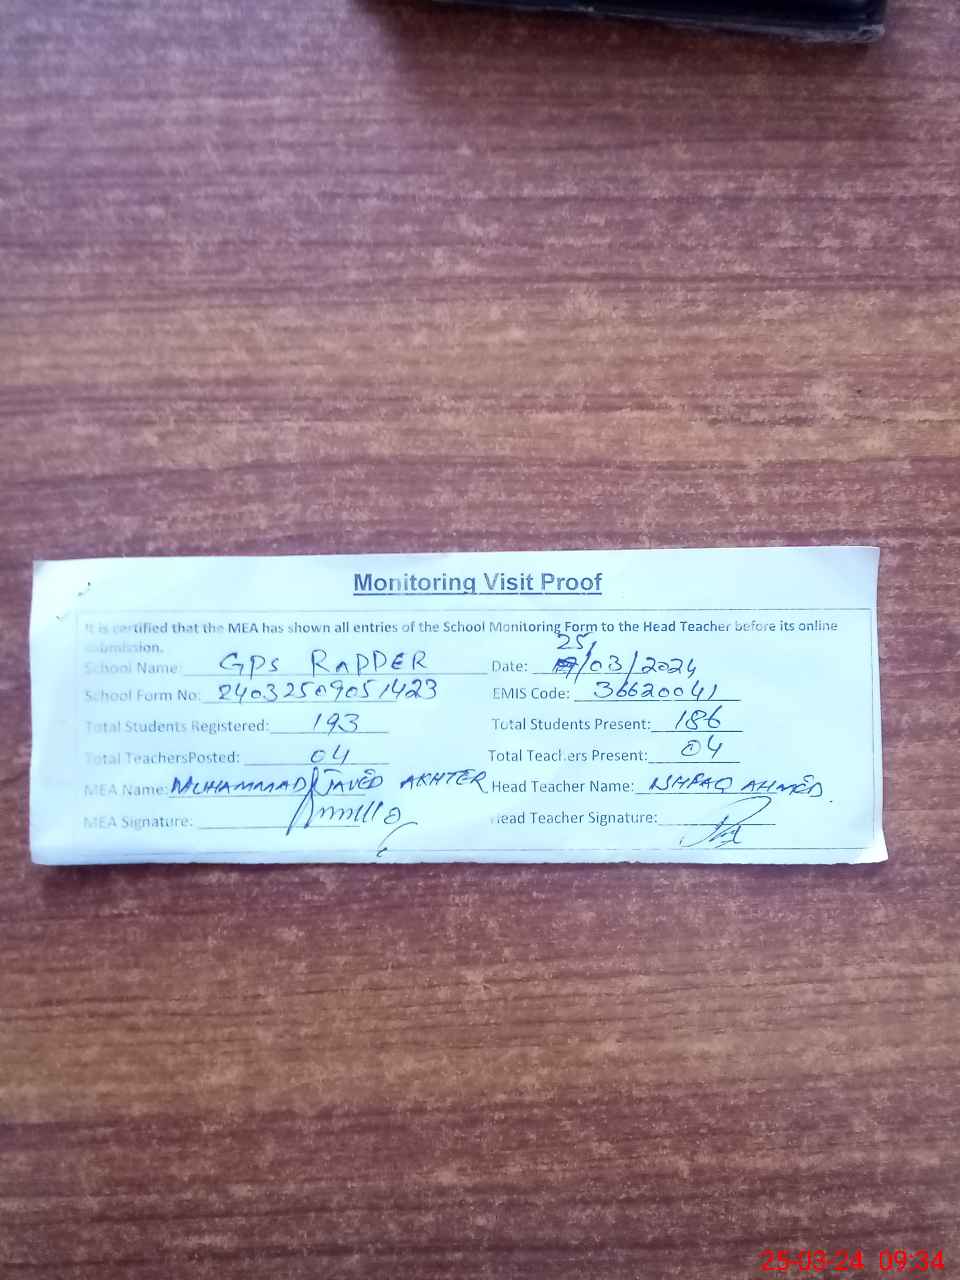 Monitoring Visit Proof
It is certified that the MEA has shown all entries of the School Monitoring Form to the Head Teacher before its online
submission.
School Name: GPS RAPPER Date: 25/03/2024
School Form No: 24032509051423 EMIS Code: 36620041
Total Students Registered: 193 Total Students Present: 186
Total TeachersPosted: 04 Total Teachers Present: 04
MEA Name: MUHAMMAD JAVED AKHTER Head Teacher Name: ISHFAQ AHMED
MEA Signature: Head Teacher Signature:
25-03-24 09:34